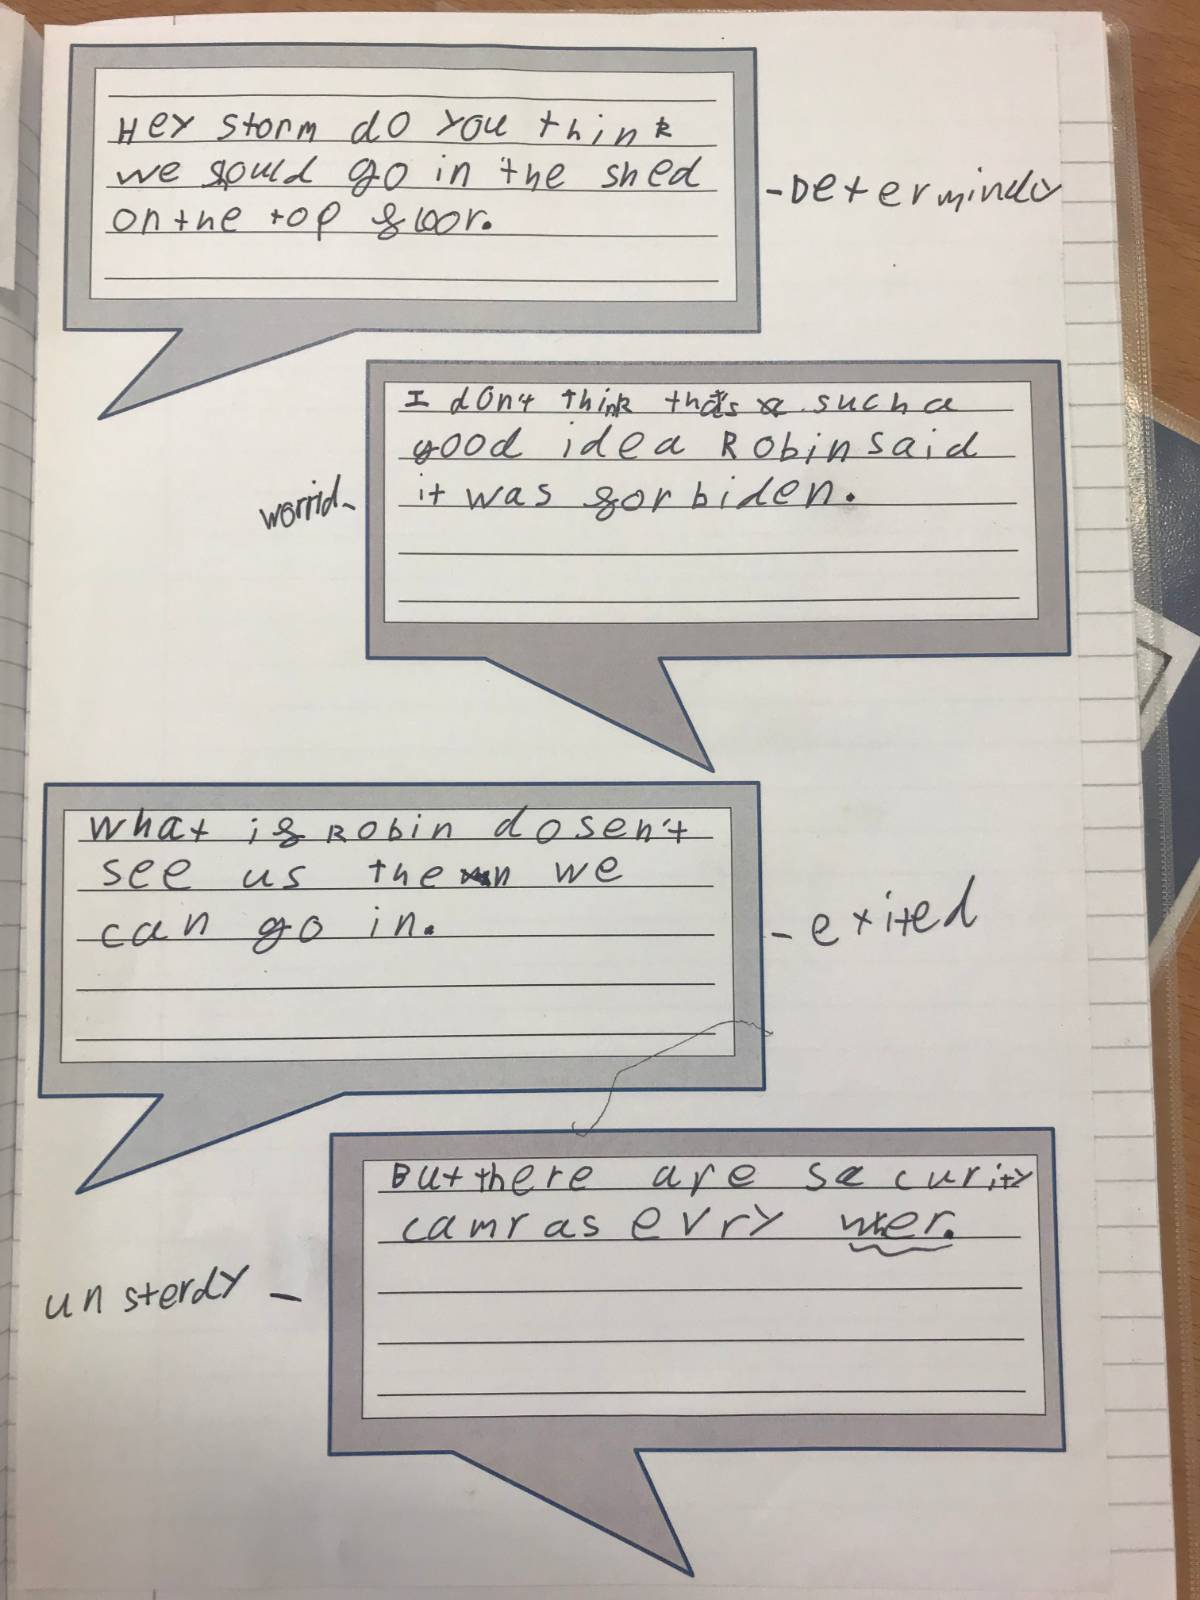 Hey storm do you think
we sould go in the shed
on the top floor.
-Determindy
I don't think that's such a
good idea Robin said
it was forbiden.
worrid-
What if Robin dosen't
see us then we
can go in.
-exited
But there are security
camras evry wher.
unsterdy -